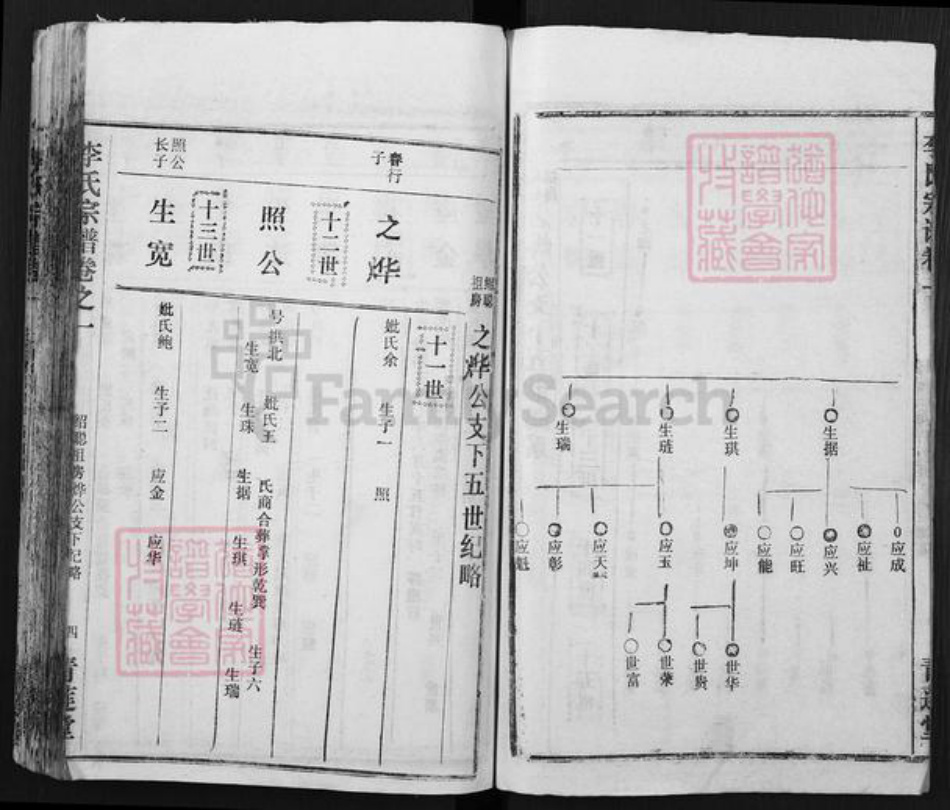 李氏宗谱卷之一
生据
生琪
生琏
生瑞
应成
应祉
应兴
应旺
应能
应坤
应玉
应天
应彰
应魁
世华
世贵
世荣
世富
绍聪祖房
之烨公支下五世纪略
十一世
春行子
之烨
妣氏余 生子一 照
十二世
照公
号拱北 妣氏王 氏商合葬 形乾巽 生子六
生宽 生珠 生据 生琪 生琏 生瑞
十三世
照公长子
生宽
妣氏鲍 生子二 应金 应华
李氏宗谱卷之一
绍聪祖房烨公支下纪略
四
青莲堂
FamilySearch